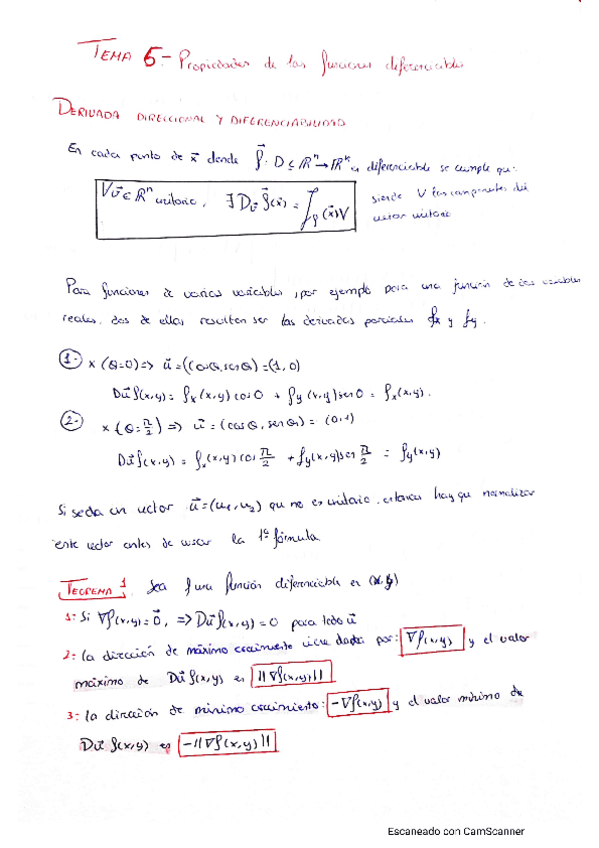 TEMA 5.- Propiedades de las funciones diferenciables
DERIVADA DIRECCIONAL Y DIFERENCIABILIDAD
En cada punto de x⃗ donde f⃗: D ⊆ ℝⁿ → ℝᵏ es diferenciable se cumple que:
∀v⃗ ∈ ℝⁿ unitario, ∃ D_v⃗ f⃗(x⃗) = J_f(x⃗)V
siendo V las componentes del
vector unitario
Para funciones de varias variables, por ejemplo para una función de dos variables
reales, dos de ellas resultan ser las derivadas parciales fx y fy.
1- x (θ=0) => u⃗ = (cosθ, senθ) = (1,0)
Du⃗ f(x,y) = fx(x,y) cos0 + fy(x,y) sen0 = fx(x,y).
2- x (θ=π/2) => u⃗ = (cosθ, senθ) = (0,1)
Du⃗ f(x,y) = fx(x,y) cos π/2 + fy(x,y) sen π/2 = fy(x,y)
Si se da un vector u⃗ = (u₁, u₂) que no es unitario, entonces hay que normalizar
este vector antes de usar la 1ª fórmula
TEOREMA 1 Sea f una función diferenciable en (x,y)
1- Si ∇f(x,y) = 0⃗, => Du⃗ f(x,y) = 0 para todo u⃗
2- La dirección de máximo crecimiento viene dada por: ∇f(x,y) y el valor
máximo de Du⃗ f(x,y) es ||∇f(x,y)||
3- La dirección de mínimo crecimiento: -∇f(x,y) y el valor mínimo de
Du⃗ f(x,y) es -||∇f(x,y)||
Escaneado con CamScanner